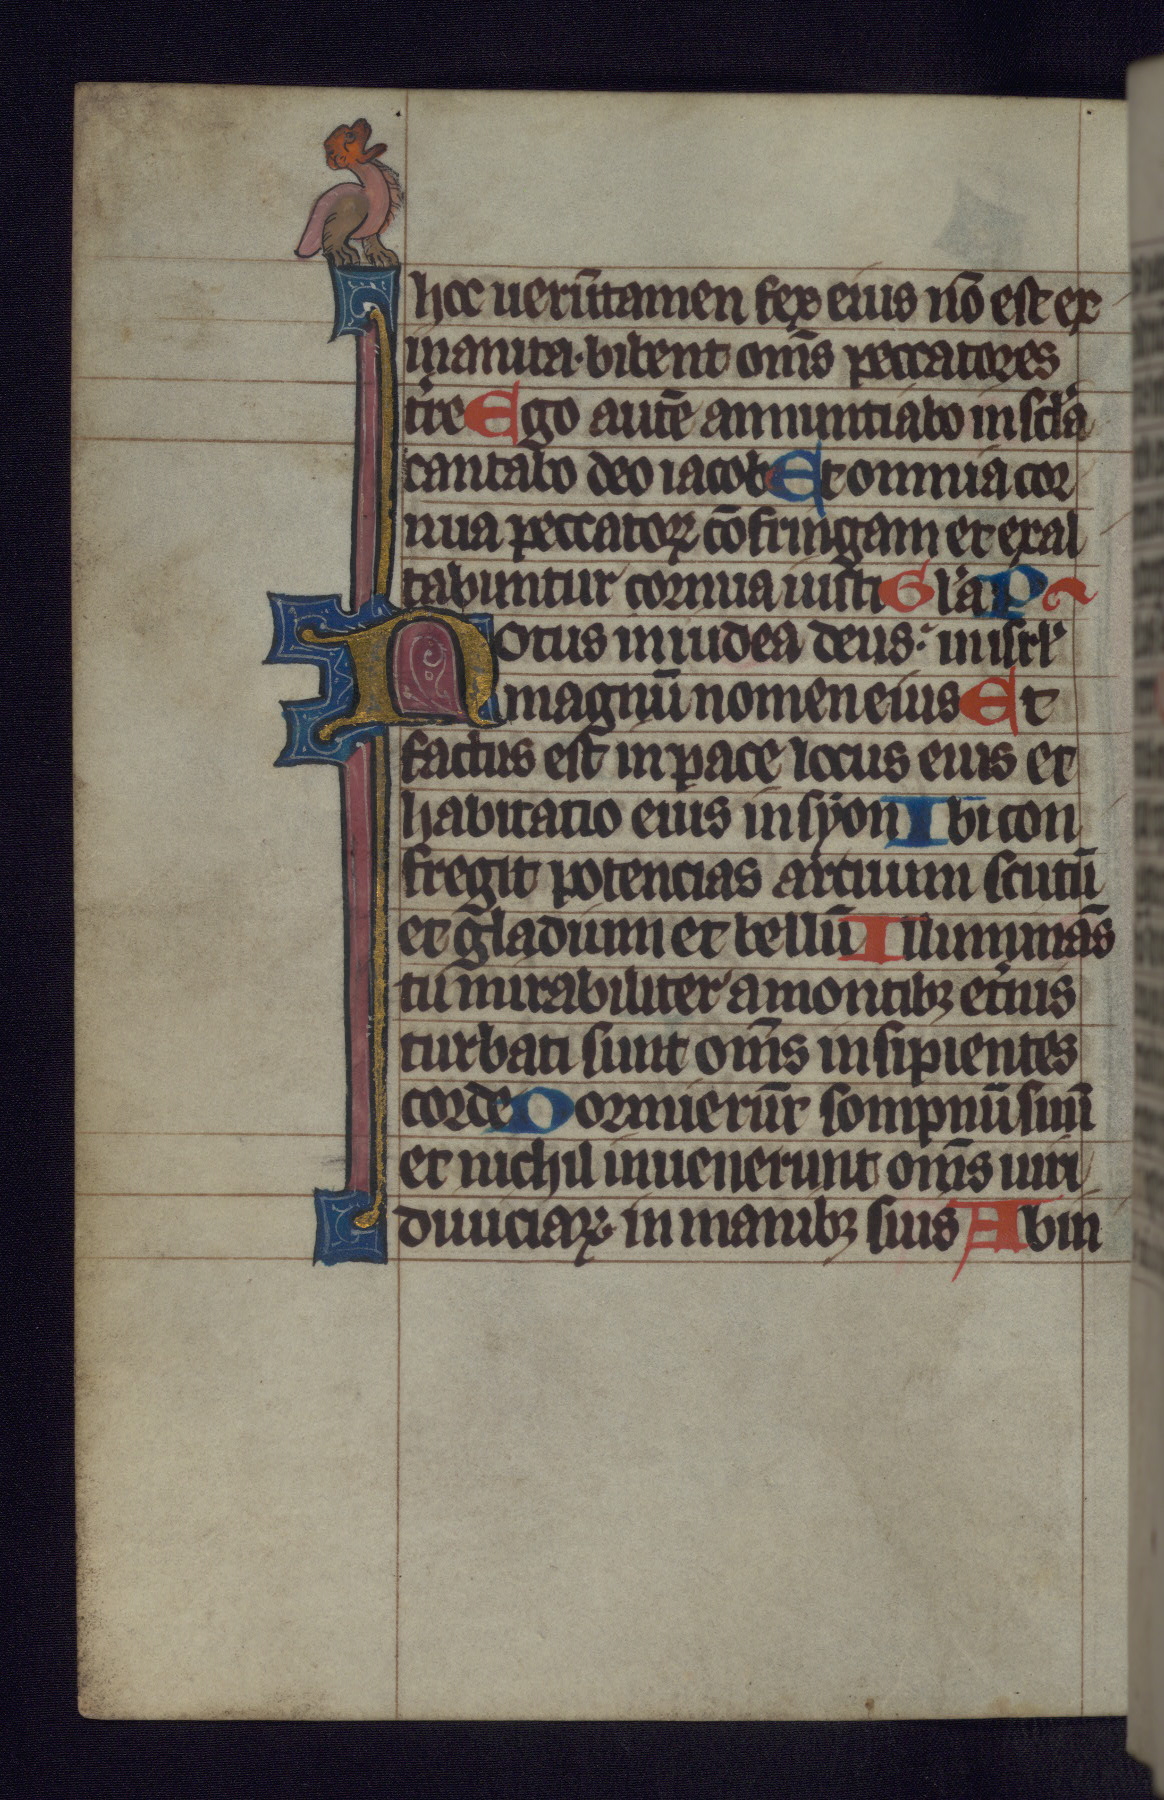 hoc uerūtamen fex eius nō est ex
inanita·bibent om̄s peccatores
t̄re Ego autē annuntiabo in scl̄a
cantabo deo iacob Et omnia cor
nua peccatoꝝ cōfringam et exal
tabuntur cornua iusti Gl̓a P̃
Notus in iudea deus: in isrl̓
magnū nomen eius Et
factus est in pace locus eius et
habitatio eius in syon Ibi con
fregit potencias arcuum scutū
et gladium et bellū Illuminās
tu mirabiliter a montibꝫ et̓nis
turbati sunt om̄s insipientes
corde Dormierūt sompnū suū
et nichil inuenerunt om̄s uiri
diuiciaꝝ in manibꝫ suis A bin